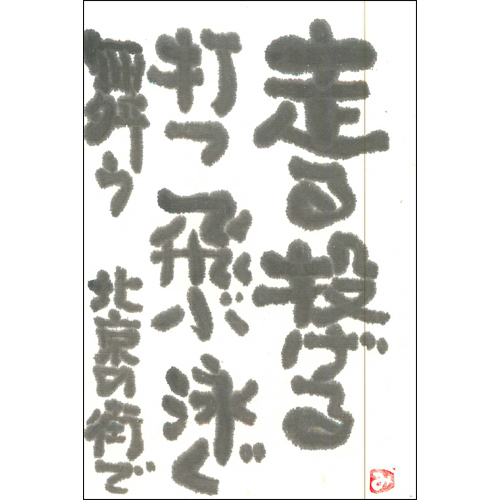 走る投げる
打つ飛ぶ泳ぐ
舞う 北京の街で